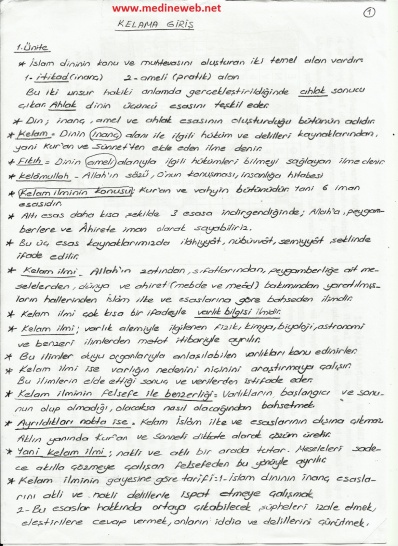 www.medineweb.net
1
KELAMA GİRİŞ
1.Ünite
* İslam dininin konu ve muhtevasını oluşturan iki temel alan vardır:
1- itikad (inanç) 2- ameli (pratik) alan
Bu iki unsur hakiki anlamda gerçekleştirildiğinde ahlak sonucu
çıkar. Ahlak dinin üçüncü esasını teşkil eder.
* Din; inanç, amel ve ahlak esasının oluşturduğu bütünün adıdır.
* Kelam = Dinin inanç alanı ile ilgili hüküm ve delilleri kaynaklarından,
yani Kur'an ve Sünnet'ten elde eden ilme denir.
* Fıkıh = Dinin ameli alanıyla ilgili hükümleri bilmeyi sağlayan ilme denir.
* kelamullah - Allah'ın sözü, O'nun konuşması, insanlığa hitabesi
* Kelam ilminin konusu: Kur'an ve vahyin bütünüdür. Yani 6 iman
esasıdır.
* Altı esas daha kısa şekilde 3 esasa indirgendiğinde; Allah'a, peygam-
berlere ve Âhirete iman olarak sayabiliriz.
* Bu üç esas kaynaklarımızda ilâhiyyât, nübüvvât, semiyyât şeklinde
ifade edilir.
* Kelam ilmi. Allah'ın zatından, sıfatlarından, peygamberliğe ait me-
selelerden, dünya ve ahiret (mebde ve meâd) bakımından yaratılmış-
ların hallerinden İslâm ilke ve esaslarına göre bahseden ilimdir.
* Kelam ilmi çok kısa bir ifadeyle varlık bilgisi ilmidir.
* Kelam ilmi; varlık alemiyle ilgilenen fizik, kimya, biyoloji, astronomi
ve benzeri ilimlerden metot itibariyle ayrılır.
* Bu ilimler duyu organlarıyla anlaşılabilen varlıkları konu edinirler.
* Kelam ilmi ise varlığın nedenini niçinini araştırmaya çalışır.
Bu ilimlerin elde ettiği sonuç ve verilerden istifade eder.
* Kelam ilminin Felsefe ile benzerliği = Varlıkların başlangıcı ve sonu-
nun olup olmadığı, olacaksa nasıl olacağından bahsetmek.
* Ayrıldıkları nokta ise. Kelam İslâm ilke ve esaslarının dışına çıkmaz.
Aklın yanında Kur'an ve Sünneti dikkate alarak çözüm üretir.
* Yani kelam ilmi; nakli ve aklı bir arada tutar. Meseleleri sade-
ce akılla çözmeye çalışan felsefeden bu yönüyle ayrılır.
* Kelam ilminin gayesine göre tarifi: 1- İslam dininin inanç esasla-
rını akli ve nakli delillerle ispat etmeye çalışmak
2- Bu esaslar hakkında ortaya çıkabilecek şüpheleri izale etmek,
eleştirilere cevap vermek, onların iddia ve delillerini çürütmek.